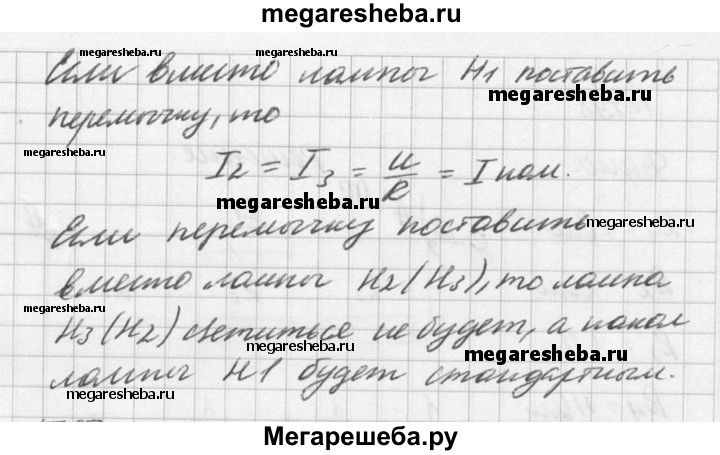 megaresheba.ru
megaresheba.ru megaresheba.ru
Если вместо лампы H1 поставить
megaresheba.ru
перемычку, то
I2 = I3 = U/R = I ном.
megaresheba.ru
Если перемычку поставить megaresheba.ru
вместо лампы H2 (H3), то лампа
megaresheba.ru
H3 (H2) светиться не будет, а накал
megaresheba.ru megaresheba.ru
лампы H1 будет стандартным.
Мегарешеба.ру